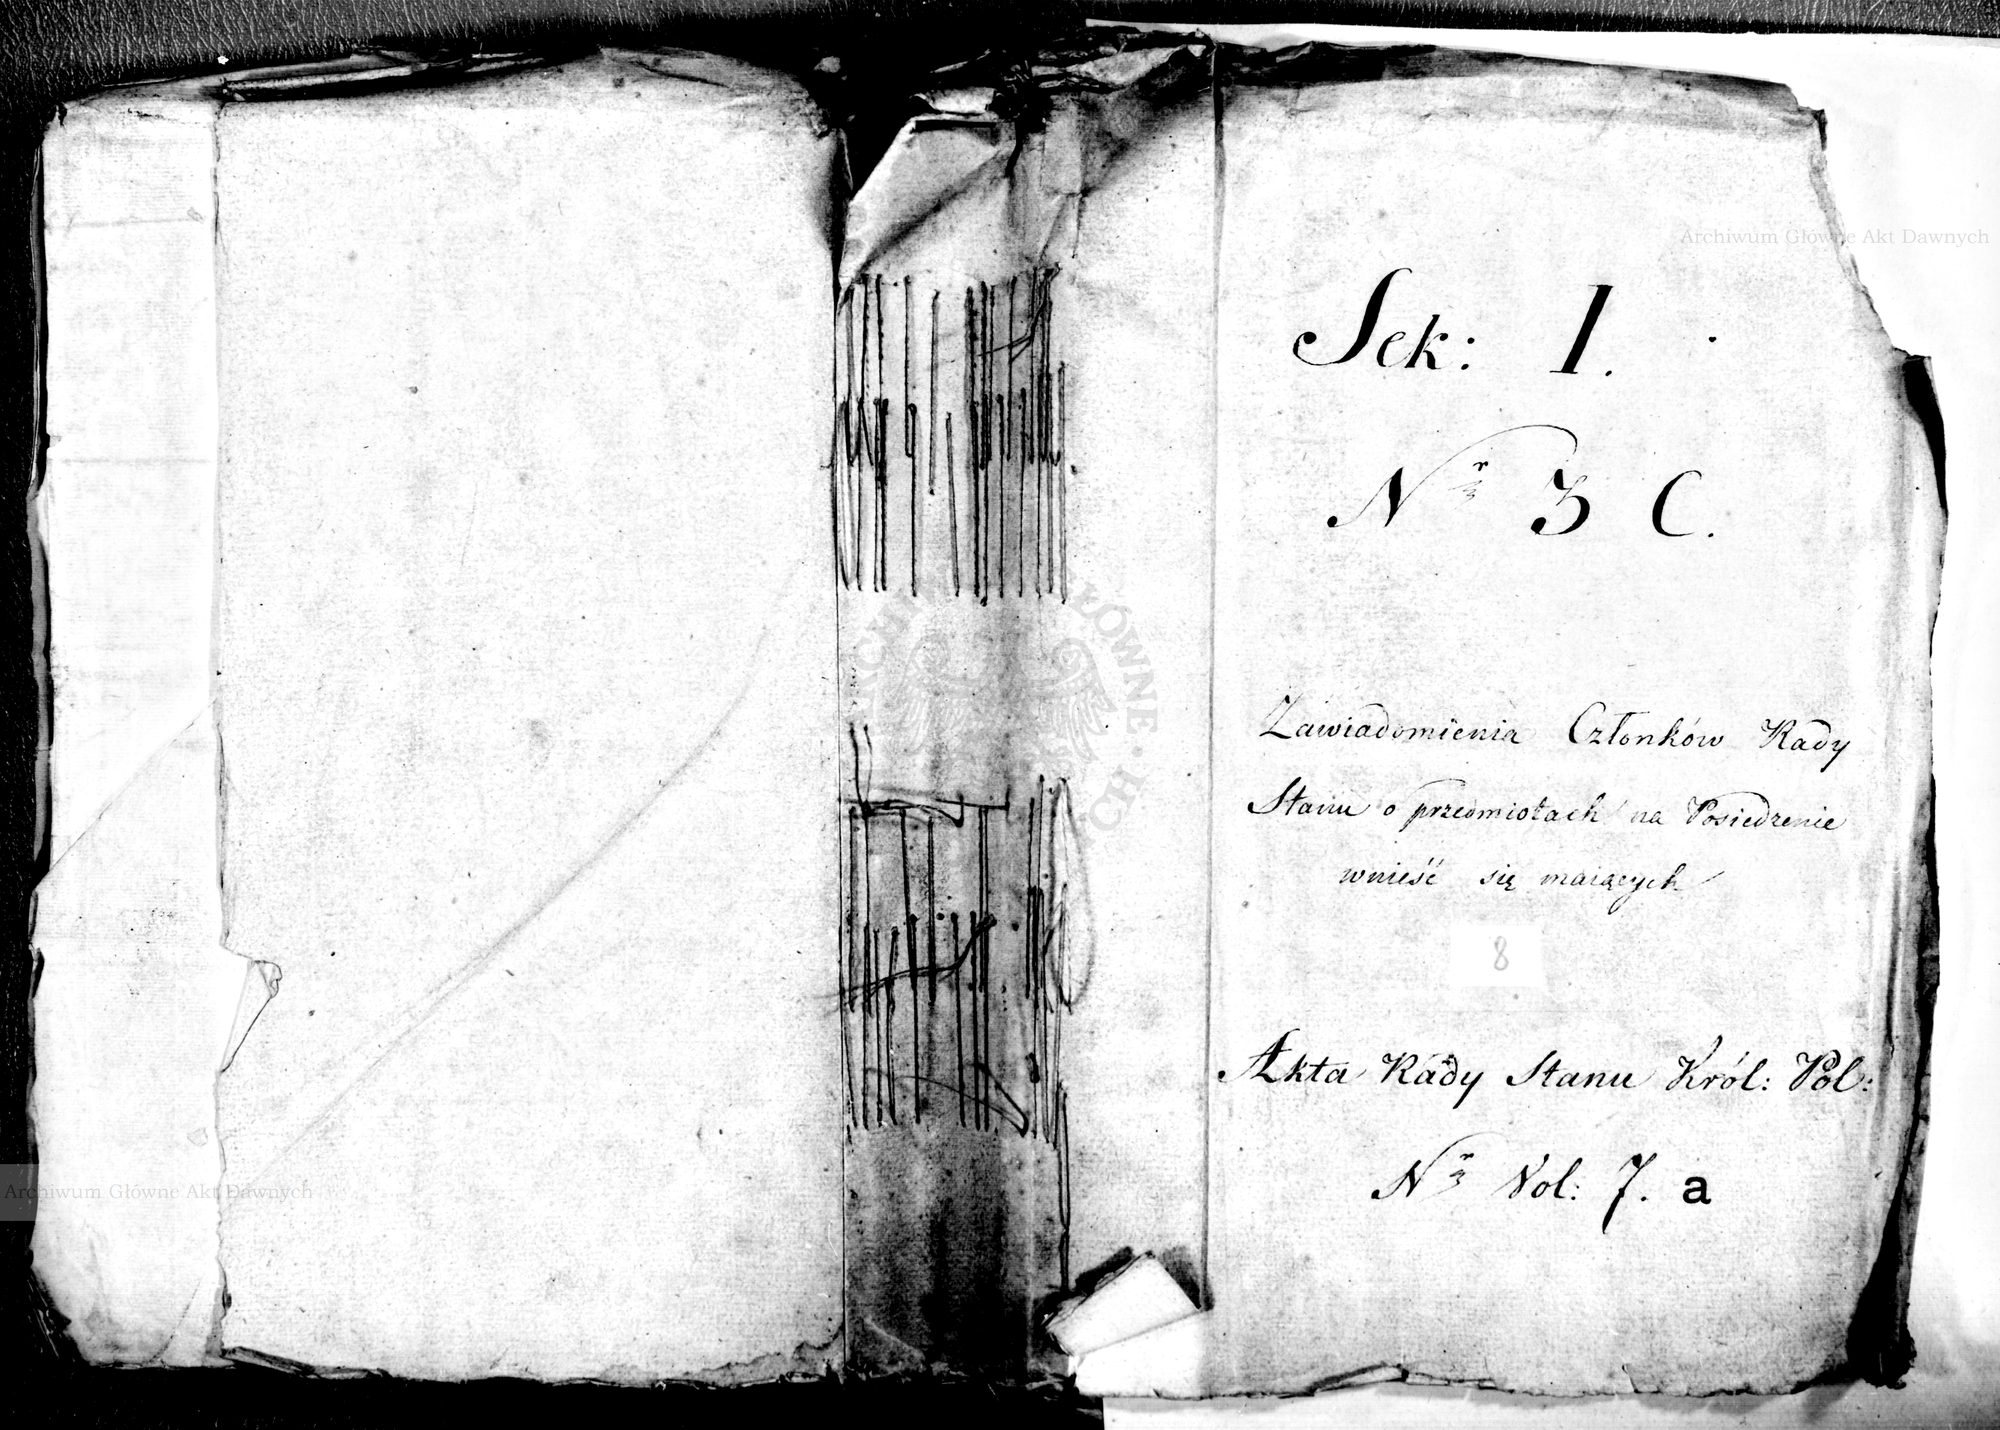 Archiwum Główne Akt Dawnych
Sek: I.
Nr 3 C.
Zawiadomienia Członków Rady
Stanu o przedmiotach na Posiedzenie
wnieść się maiących
8
Akta Rady Stanu Król: Pol:
Nr Vol: 7. a
Archiwum Główne Akt Dawnych